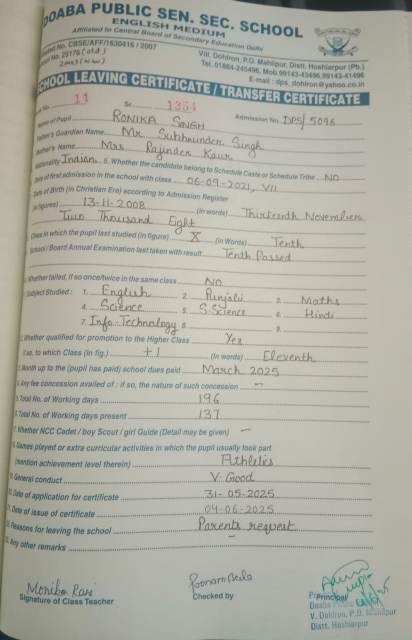 DOABA PUBLIC SEN. SEC. SCHOOL
ENGLISH MEDIUM
Affiliated to Central Board of Secondary Education Delhi
No. CBSE/AFF/1630416 / 2007
Vill. Dohlron, P.O. Mahilpur, Distt. Hoshiarpur (Pb.)
Tel. 01884-245496, Mob.99143-43496,99143-41496
E-mail : dps_dohlron@yahoo.co.in
SCHOOL LEAVING CERTIFICATE / TRANSFER CERTIFICATE
No. 14 Sr. 1364 Admission No. DPS/5096
Name of Pupil RONIKA SINGH
Father's Guardian Name Mr. Sukhwinder Singh
Mother's Name Mrs Rajinder Kaur
Nationality Indian 5. Whether the candidate belong to Schedule Caste or Schedule Tribe NO
Date of first admission in the school with class 06-09-2021, VII
Date of Birth (in Christian Era) according to Admission Register
(in figures) 13-11-2008 (in words) Thirteenth November
Two Thousand Eight
Class in which the pupil last studied (in figure) X (in Words) Tenth
School / Board Annual Examination last taken with result Tenth Passed
Whether failed, if so once/twice in the same class NO
Subject Studied : 1. English 2. Punjabi 3. Maths
4. Science 5. S.Science 6. Hindi
7. Info. Technology 8 9.
Whether qualified for promotion to the Higher Class Yes
if so, to which Class (in fig.) +1 (in words) Eleventh
Month up to the (pupil has paid) school dues paid March 2025
Any fee concession availed of : if so, the nature of such concession –
Total No. of Working days 196
Total No. of Working days present 137
Whether NCC Cadet / boy Scout / girl Guide (Detail may be given) –
Games played or extra curricular activities in which the pupil usually took part
(mention achievement level therein) Athletics
General conduct V. Good
Date of application for certificate 31-05-2025
Date of issue of certificate 04-06-2025
Reasons for leaving the school Parents request
Any other remarks –
Monika Rani
Signature of Class Teacher
Checked by
Principal
Doaba Public
V. Dohlron, P.O. Mahilpur
Distt. Hoshiarpur